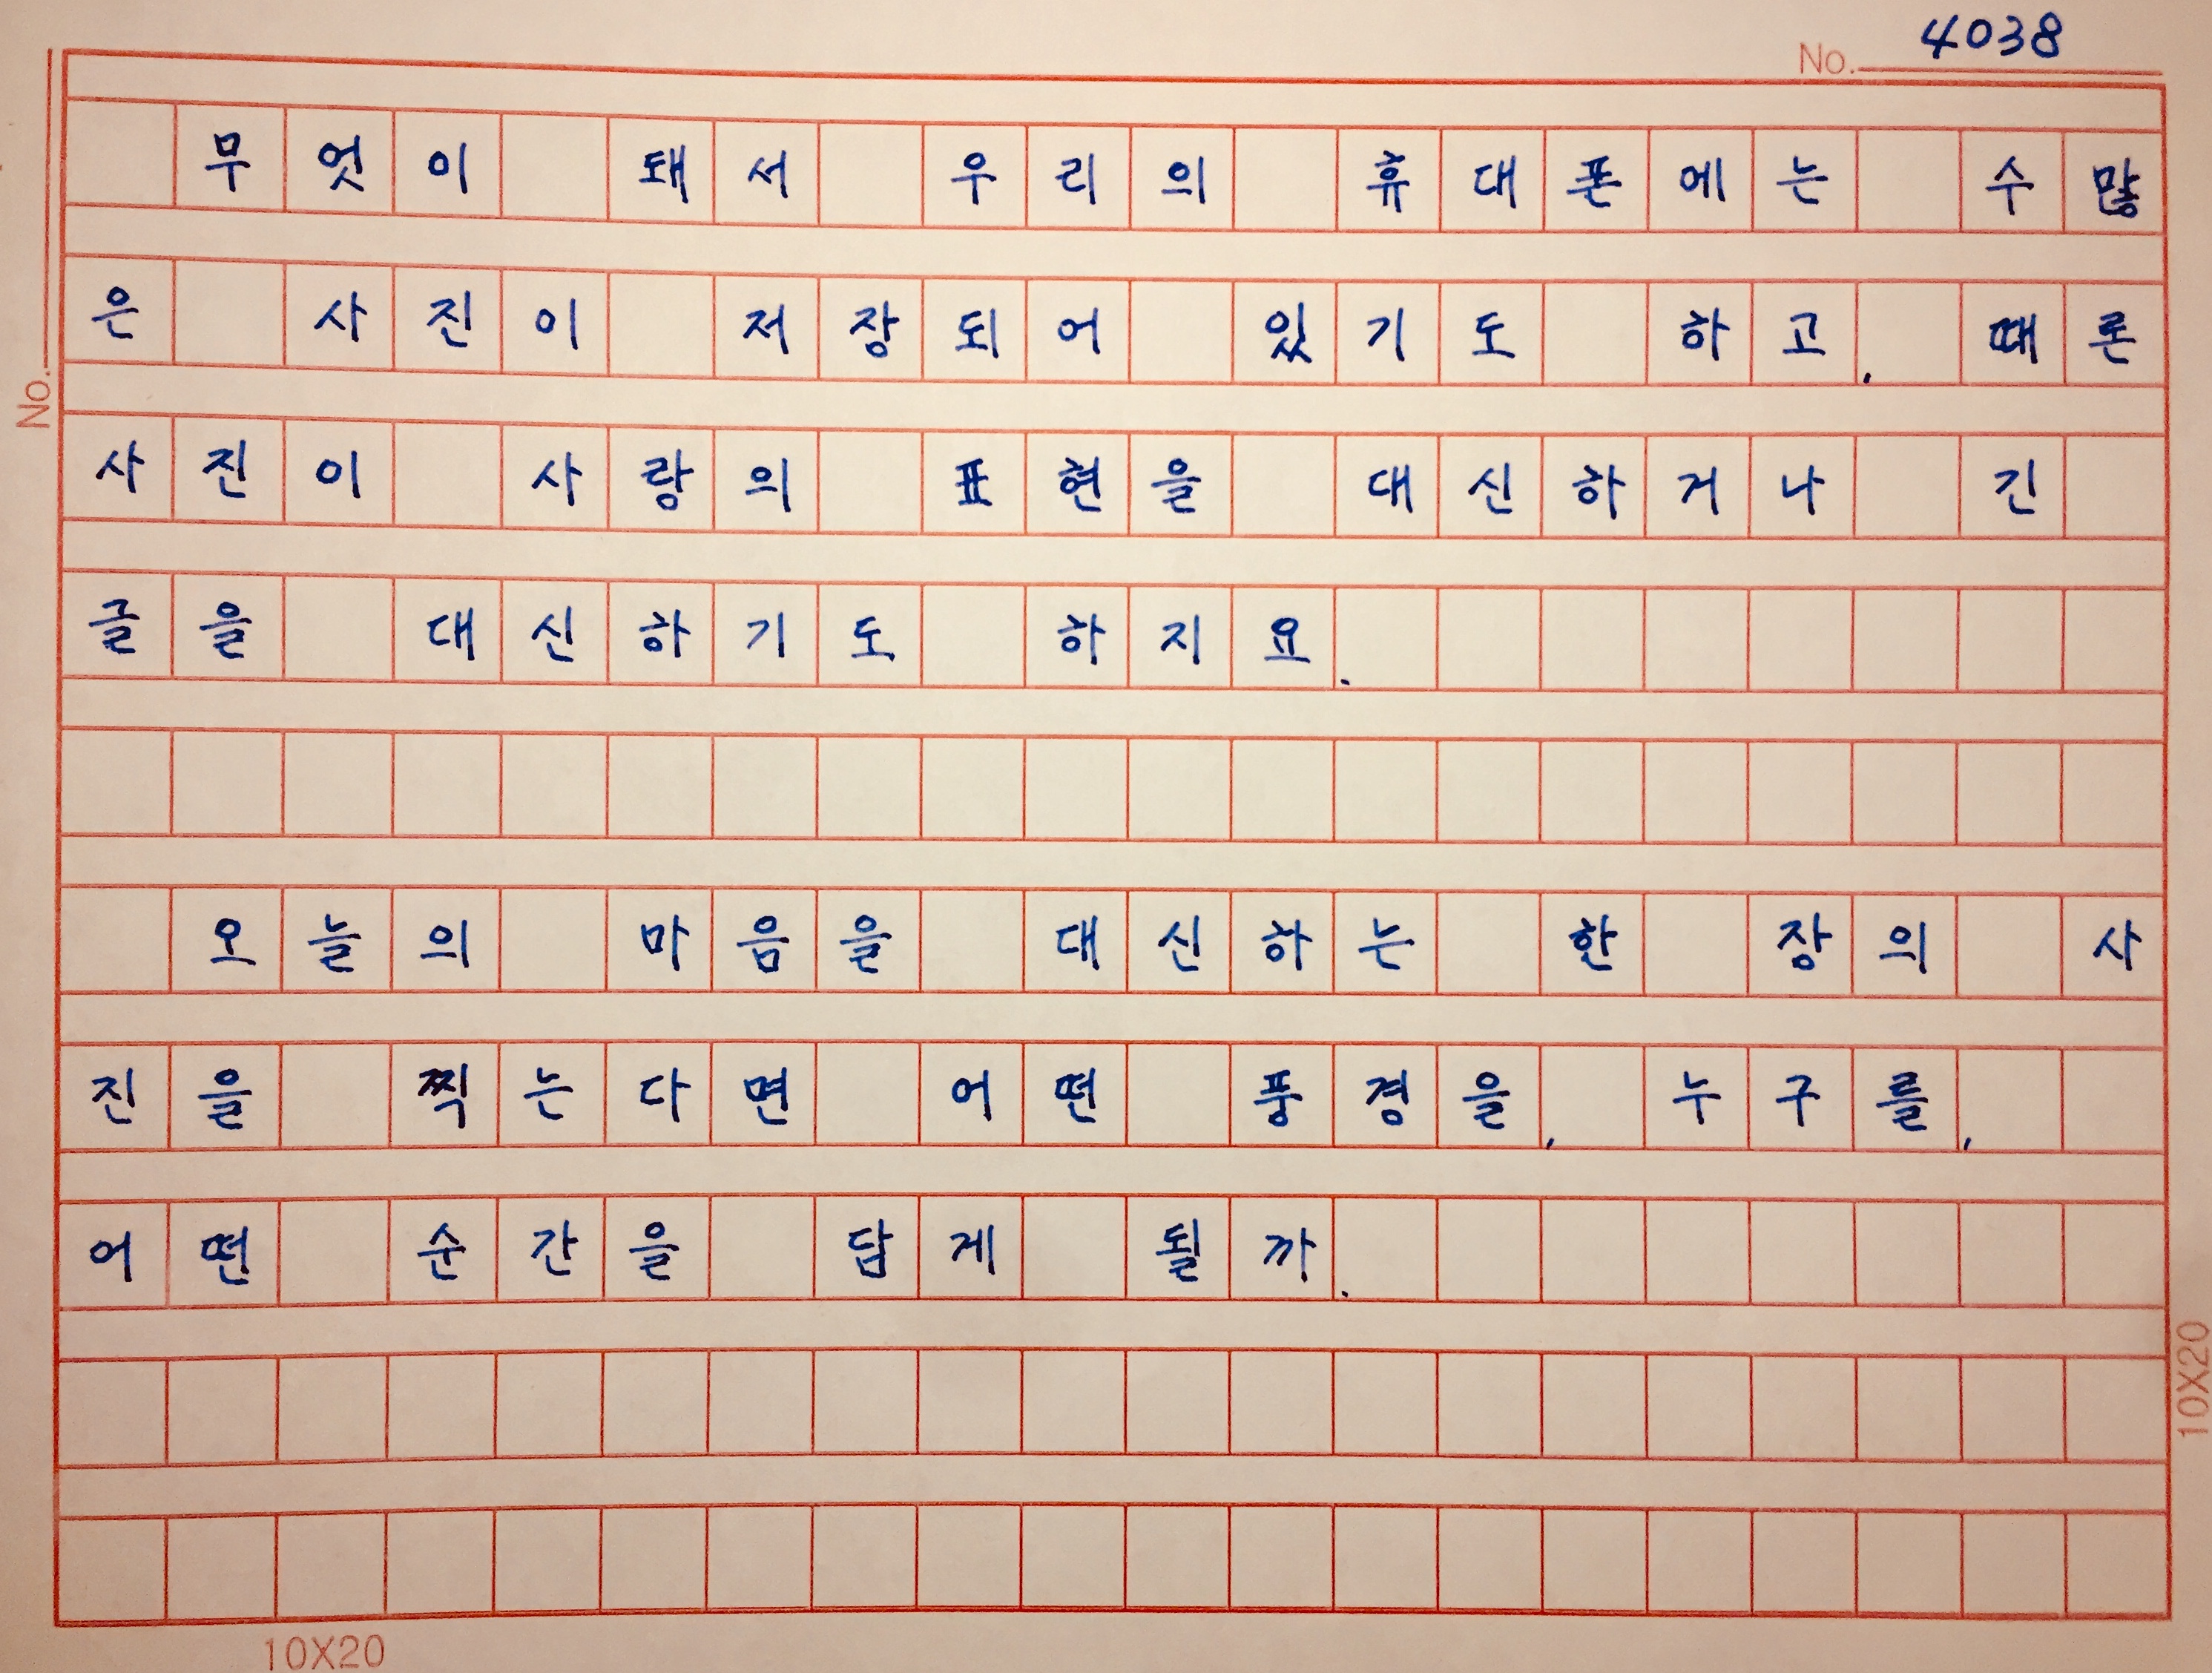 No. 4038
무엇이 돼서 우리의 휴대폰에는 수많
은 사진이 저장되어 있기도 하고, 때론
사진이 사랑의 표현을 대신하거나 긴
글을 대신하기도 하지요.
오늘의 마음을 대신하는 한 장의 사
진을 찍는다면 어떤 풍경을, 누구를,
어떤 순간을 담게 될까.
No.
10X20
10X20